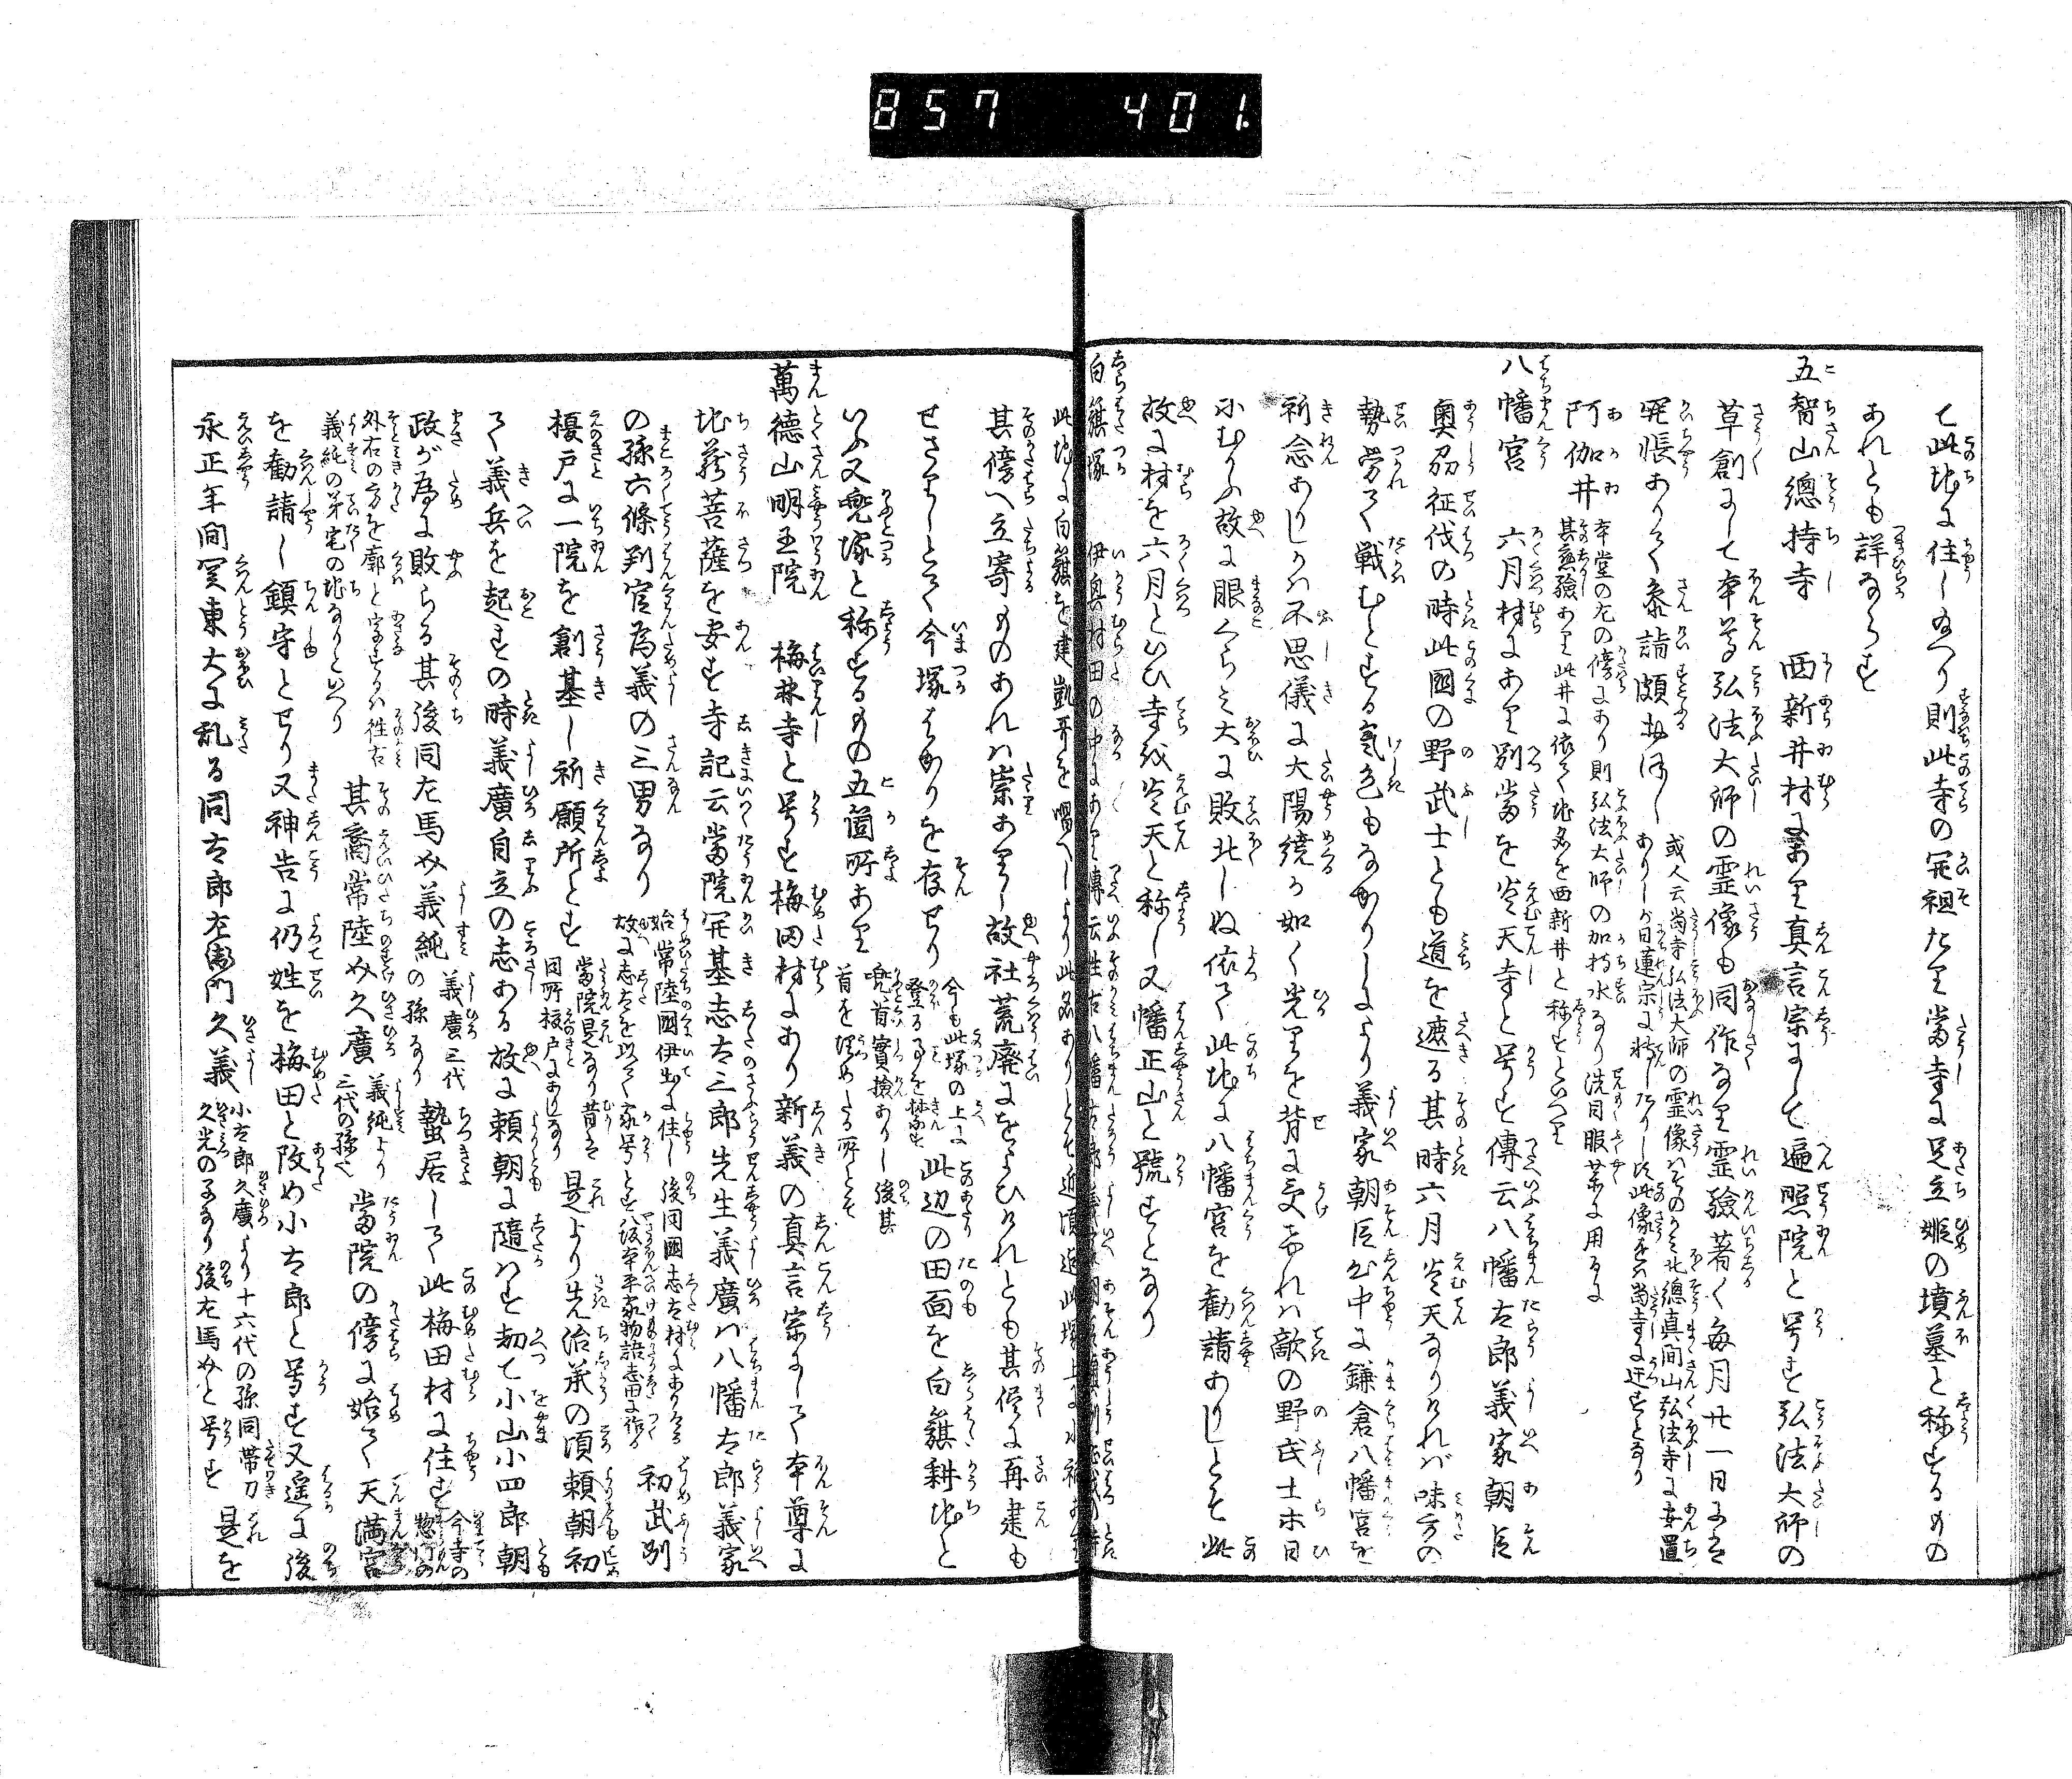 857 401
て此地に住し給へり則此寺の開祖たり當寺に足立姫の墳墓と称するもの
あれとも詳ならす
五智山總持寺 西新井村にあり真言宗にして遍照院と号す弘法大師の
草創にして本尊弘法大師の霊像も同作なり霊験著く毎月廿一日には
開帳ありて参詣頗
或人云當寺弘法大師の霊像はそのかミ北總真間山弘法寺に安置
ありしか日蓮宗に
阿伽井
本堂の左の傍にあり則弘法大師の加持水なり洗目服薬に用るに
其應驗あり此井に依て地名を西新井と称すといへり
八幡宮 六月村にあり別當を炎天寺と号す傳云八幡太郎義家朝臣
奥刕征伐の時此國の野武士とも道を遮る其時六月炎天なりけれバ味方の
勢労て戦むとする氣色もなかりしより義家朝臣心中に鎌倉八幡宮を
祈念ありしかは不思儀に大陽繞か如く光りを背に受けれは敵の野武士末日
にむかふ故に眼くらミ大に敗北しぬ依て此地に八幡宮を勧請ありしとそ此
故に村を六月といひ寺を炎天と称し又幡正山と號すとなり
白籏塚 伊興村田の中にあり傳云
此地に白籏を建凱哥を唱へしより此名ありとそ近頃迄此塚上に小祠あり
其傍へ立寄ものあれは崇あり故社荒廃にをよひけれとも其侭に再建も
せさりしとて今塚はかりを存せり
今も此塚の上に
登る事を禁す
此辺の田面を白籏耕地と
いふ又兜塚と称するもの五箇所あり
兜首實撿ありし後其
首を埋めたる所とそ
萬徳山明王院 梅林寺と号す梅田村にあり新義の真言宗にして本尊に
地蔵菩薩を安す寺記云當院開基志太三郎先生義廣は八幡太郎義家
の孫六條判官為義の三男なり
始常陸國伊出に住し後同國志太村にありける
故に志太を以て家号とす八坂本平家物語志田に作る
初武刕
榎戸に一院を創基し祈願所とす
當院是なり昔は
同所榎戸にありしなり
是より先治承の頃頼朝初
て義兵を起すの時義廣自立の志ある故に頼朝に隨はす却て小山小四郎朝
政が為に敗らる其後同左馬助義純
義廣三代
の孫なり
蟄居して此梅田村に住す
今寺の
惣門の
外右の方を廓と字するは往古
義純の第宅の地なりといへり
其裔常陸助久廣
義純より
三代の孫也
當院の傍に始て天満宮
を勧請し鎮守とせり又神告に仍姓を梅田と改め小太郎と号す又遥に後
永正年間関東大に乱る同太郎左衛門久義
小太郎久廣より十六代の孫同帯刀
久光の子なり後左馬助と号す
是を